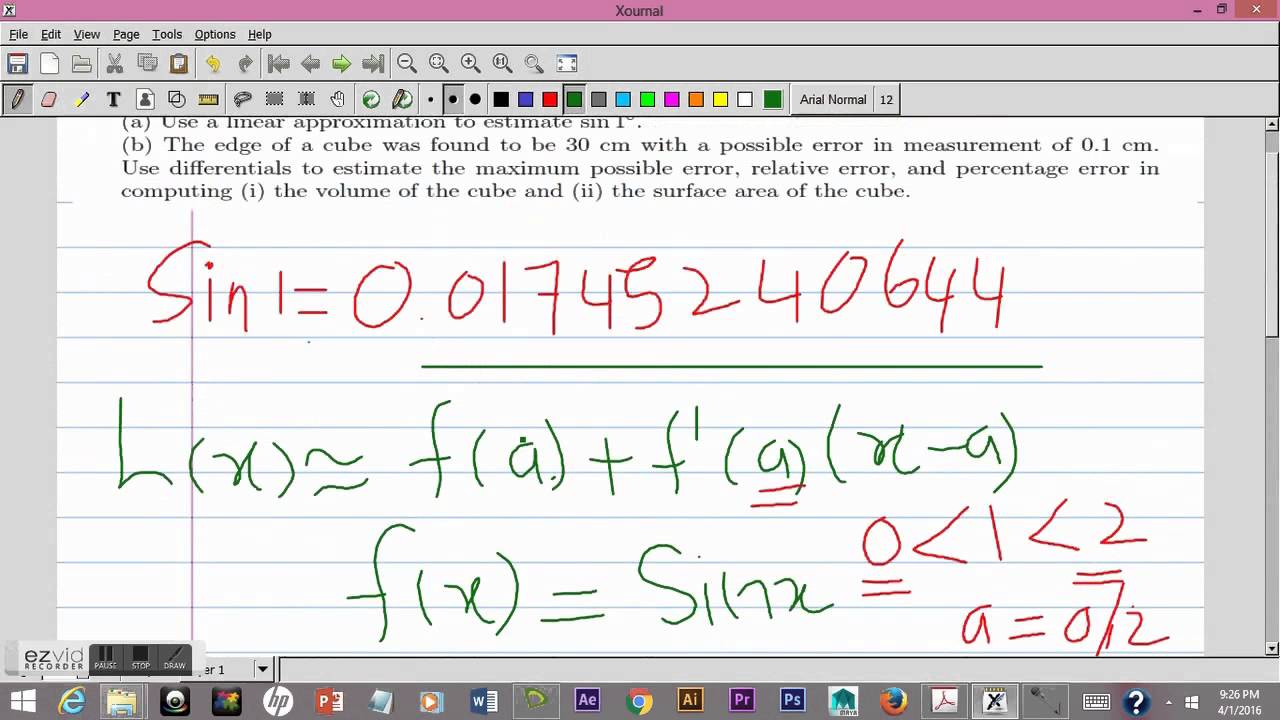 Xournal
File Edit View Page Tools Options Help
Arial Normal 12
(a) Use a linear approximation to estimate sin 1°.
(b) The edge of a cube was found to be 30 cm with a possible error in measurement of 0.1 cm.
Use differentials to estimate the maximum possible error, relative error, and percentage error in
computing (i) the volume of the cube and (ii) the surface area of the cube.
Sin1=0.01745240644
L(x)≈ f(a)+f'(a)(x-a)
0<1<2
f(x)=Sinx
a=0/2
ezvid
RECORDER
PAUSE STOP DRAW
er 1
hp Ae Ai Pr Ps MAYA
9:26 PM
4/1/2016